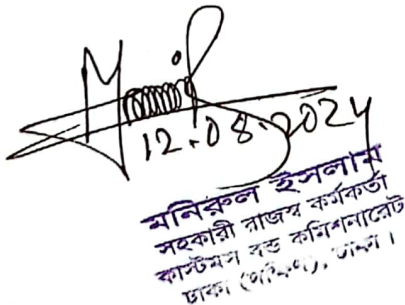 12.08.2024
মনিরুল ইসলাম
সহকারী রাজস্ব কর্মকর্তা
কাস্টমস বন্ড কমিশনারেট
ঢাকা (দক্ষিণ), ঢাকা।